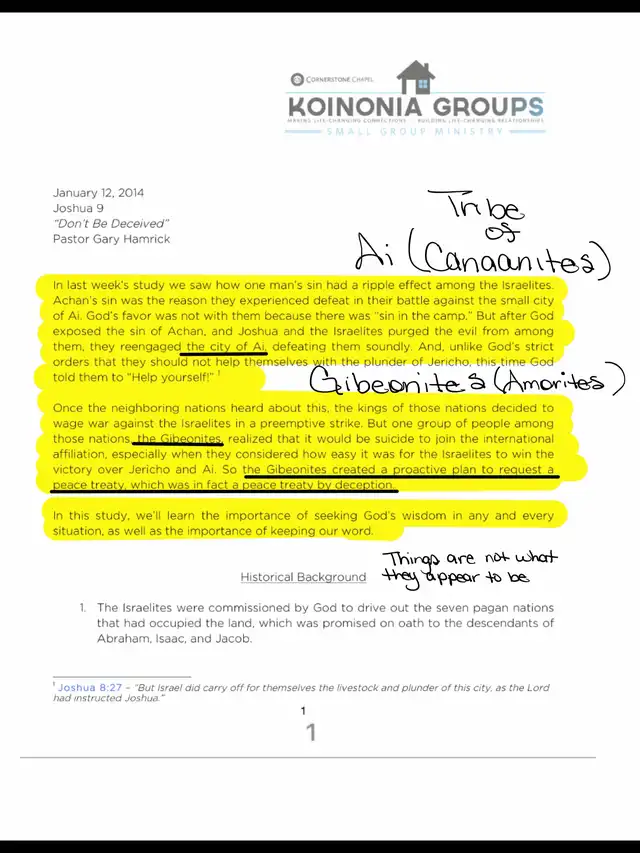 CORNERSTONE CHAPEL
KOINONIA GROUPS
MAKING LIFE-CHANGING CONNECTIONS BUILDING LIFE-CHANGING RELATIONSHIPS
SMALL GROUP MINISTRY
January 12, 2014
Joshua 9
"Don't Be Deceived"
Pastor Gary Hamrick
Tribe
of
Ai (Canaanites)
In last week's study we saw how one man's sin had a ripple effect among the Israelites.
Achan's sin was the reason they experienced defeat in their battle against the small city
of Ai. God's favor was not with them because there was "sin in the camp." But after God
exposed the sin of Achan, and Joshua and the Israelites purged the evil from among
them, they reengaged the city of Ai, defeating them soundly. And, unlike God's strict
orders that they should not help themselves with the plunder of Jericho, this time God
told them to "Help yourself!" 1
Gibeonites (Amorites)
Once the neighboring nations heard about this, the kings of those nations decided to
wage war against the Israelites in a preemptive strike. But one group of people among
those nations, the Gibeonites, realized that it would be suicide to join the international
affiliation, especially when they considered how easy it was for the Israelites to win the
victory over Jericho and Ai. So the Gibeonites created a proactive plan to request a
peace treaty, which was in fact a peace treaty by deception.
In this study, we'll learn the importance of seeking God's wisdom in any and every
situation, as well as the importance of keeping our word.
Things are not what
they appear to be
Historical Background
1. The Israelites were commissioned by God to drive out the seven pagan nations
that had occupied the land, which was promised on oath to the descendants of
Abraham, Isaac, and Jacob.
1 Joshua 8:27 – "But Israel did carry off for themselves the livestock and plunder of this city, as the Lord
had instructed Joshua."
1
1